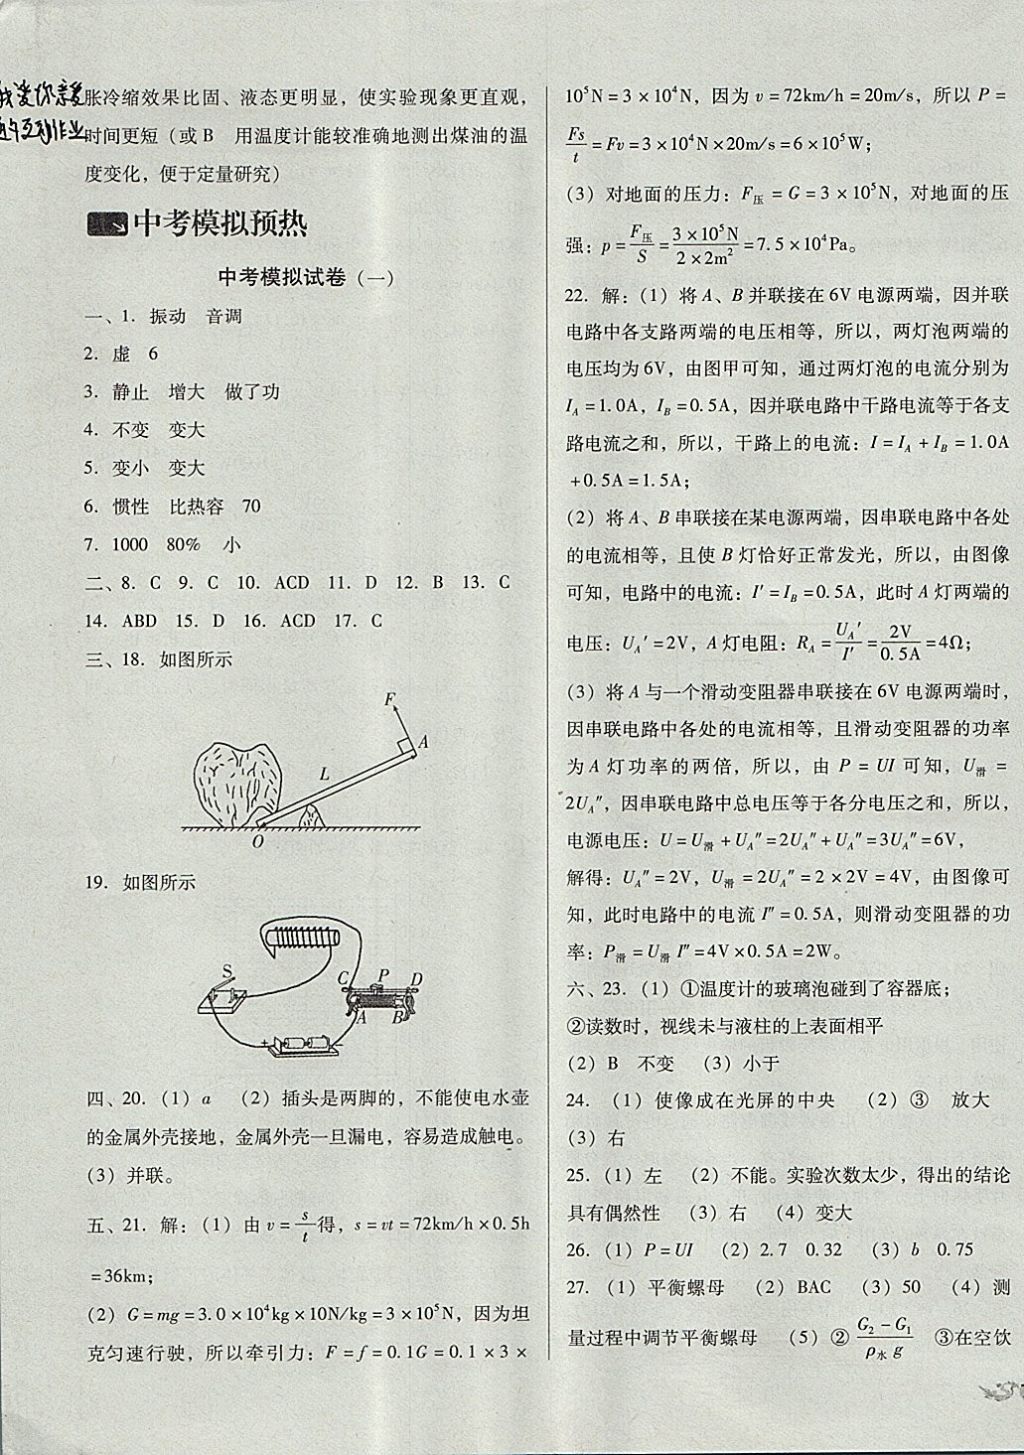 我爱你亲爱
的互动作业
胀冷缩效果比固、液态更明显，使实验现象更直观，
时间更短（或B 用温度计能较准确地测出煤油的温
度变化，便于定量研究）
中考模拟预热
中考模拟试卷（一）
一、1．振动 音调
2．虚 6
3．静止 增大 做了功
4．不变 变大
5．变小 变大
6．惯性 比热容 70
7．1000 80% 小
二、8．C 9．C 10．ACD 11．D 12．B 13．C
14．ABD 15．D 16．ACD 17．C
三、18．如图所示
F
A
L
O
19．如图所示
S
C P D
A B
+ −
四、20．（1）a （2）插头是两脚的，不能使电水壶
的金属外壳接地，金属外壳一旦漏电，容易造成触电。
（3）并联。
五、21．解：（1）由v＝s/t得，s＝vt＝72km/h×0.5h
＝36km；
（2）G＝mg＝3.0×10⁴kg×10N/kg＝3×10⁵N，因为坦
克匀速行驶，所以牵引力：F＝f＝0.1G＝0.1×3×
10⁵N＝3×10⁴N，因为v＝72km/h＝20m/s，所以P＝
Fs/t＝Fv＝3×10⁴N×20m/s＝6×10⁵W；
（3）对地面的压力：F压＝G＝3×10⁵N，对地面的压
强：p＝F压/S＝3×10⁵N/2×2m²＝7.5×10⁴Pa。
22．解：（1）将A、B并联接在6V电源两端，因并联
电路中各支路两端的电压相等，所以，两灯泡两端的
电压均为6V，由图甲可知，通过两灯泡的电流分别为
I_A＝1.0A，I_B＝0.5A，因并联电路中干路电流等于各支
路电流之和，所以，干路上的电流：I＝I_A＋I_B＝1.0A
＋0.5A＝1.5A；
（2）将A、B串联接在某电源两端，因串联电路中各处
的电流相等，且使B灯恰好正常发光，所以，由图像
可知，电路中的电流：I′＝I_B＝0.5A，此时A灯两端的
电压：U_A′＝2V，A灯电阻：R_A＝U_A′/I′＝2V/0.5A＝4Ω；
（3）将A与一个滑动变阻器串联接在6V电源两端时，
因串联电路中各处的电流相等，且滑动变阻器的功率
为A灯功率的两倍，所以，由P＝UI可知，U滑＝
2U_A″，因串联电路中总电压等于各分电压之和，所以，
电源电压：U＝U滑＋U_A″＝2U_A″＋U_A″＝3U_A″＝6V，
解得：U_A″＝2V，U滑＝2U_A″＝2×2V＝4V，由图像可
知，此时电路中的电流I″＝0.5A，则滑动变阻器的功
率：P滑＝U滑I″＝4V×0.5A＝2W。
六、23．（1）①温度计的玻璃泡碰到了容器底；
②读数时，视线未与液柱的上表面相平
（2）B 不变 （3）小于
24．（1）使像成在光屏的中央 （2）③ 放大
（3）右
25．（1）左 （2）不能。实验次数太少，得出的结论
具有偶然性 （3）右 （4）变大
26．（1）P＝UI （2）2.7 0.32 （3）b 0.75
27．（1）平衡螺母 （2）BAC （3）50 （4）测
量过程中调节平衡螺母 （5）②G₂－G₁/ρ水g ③在空饮